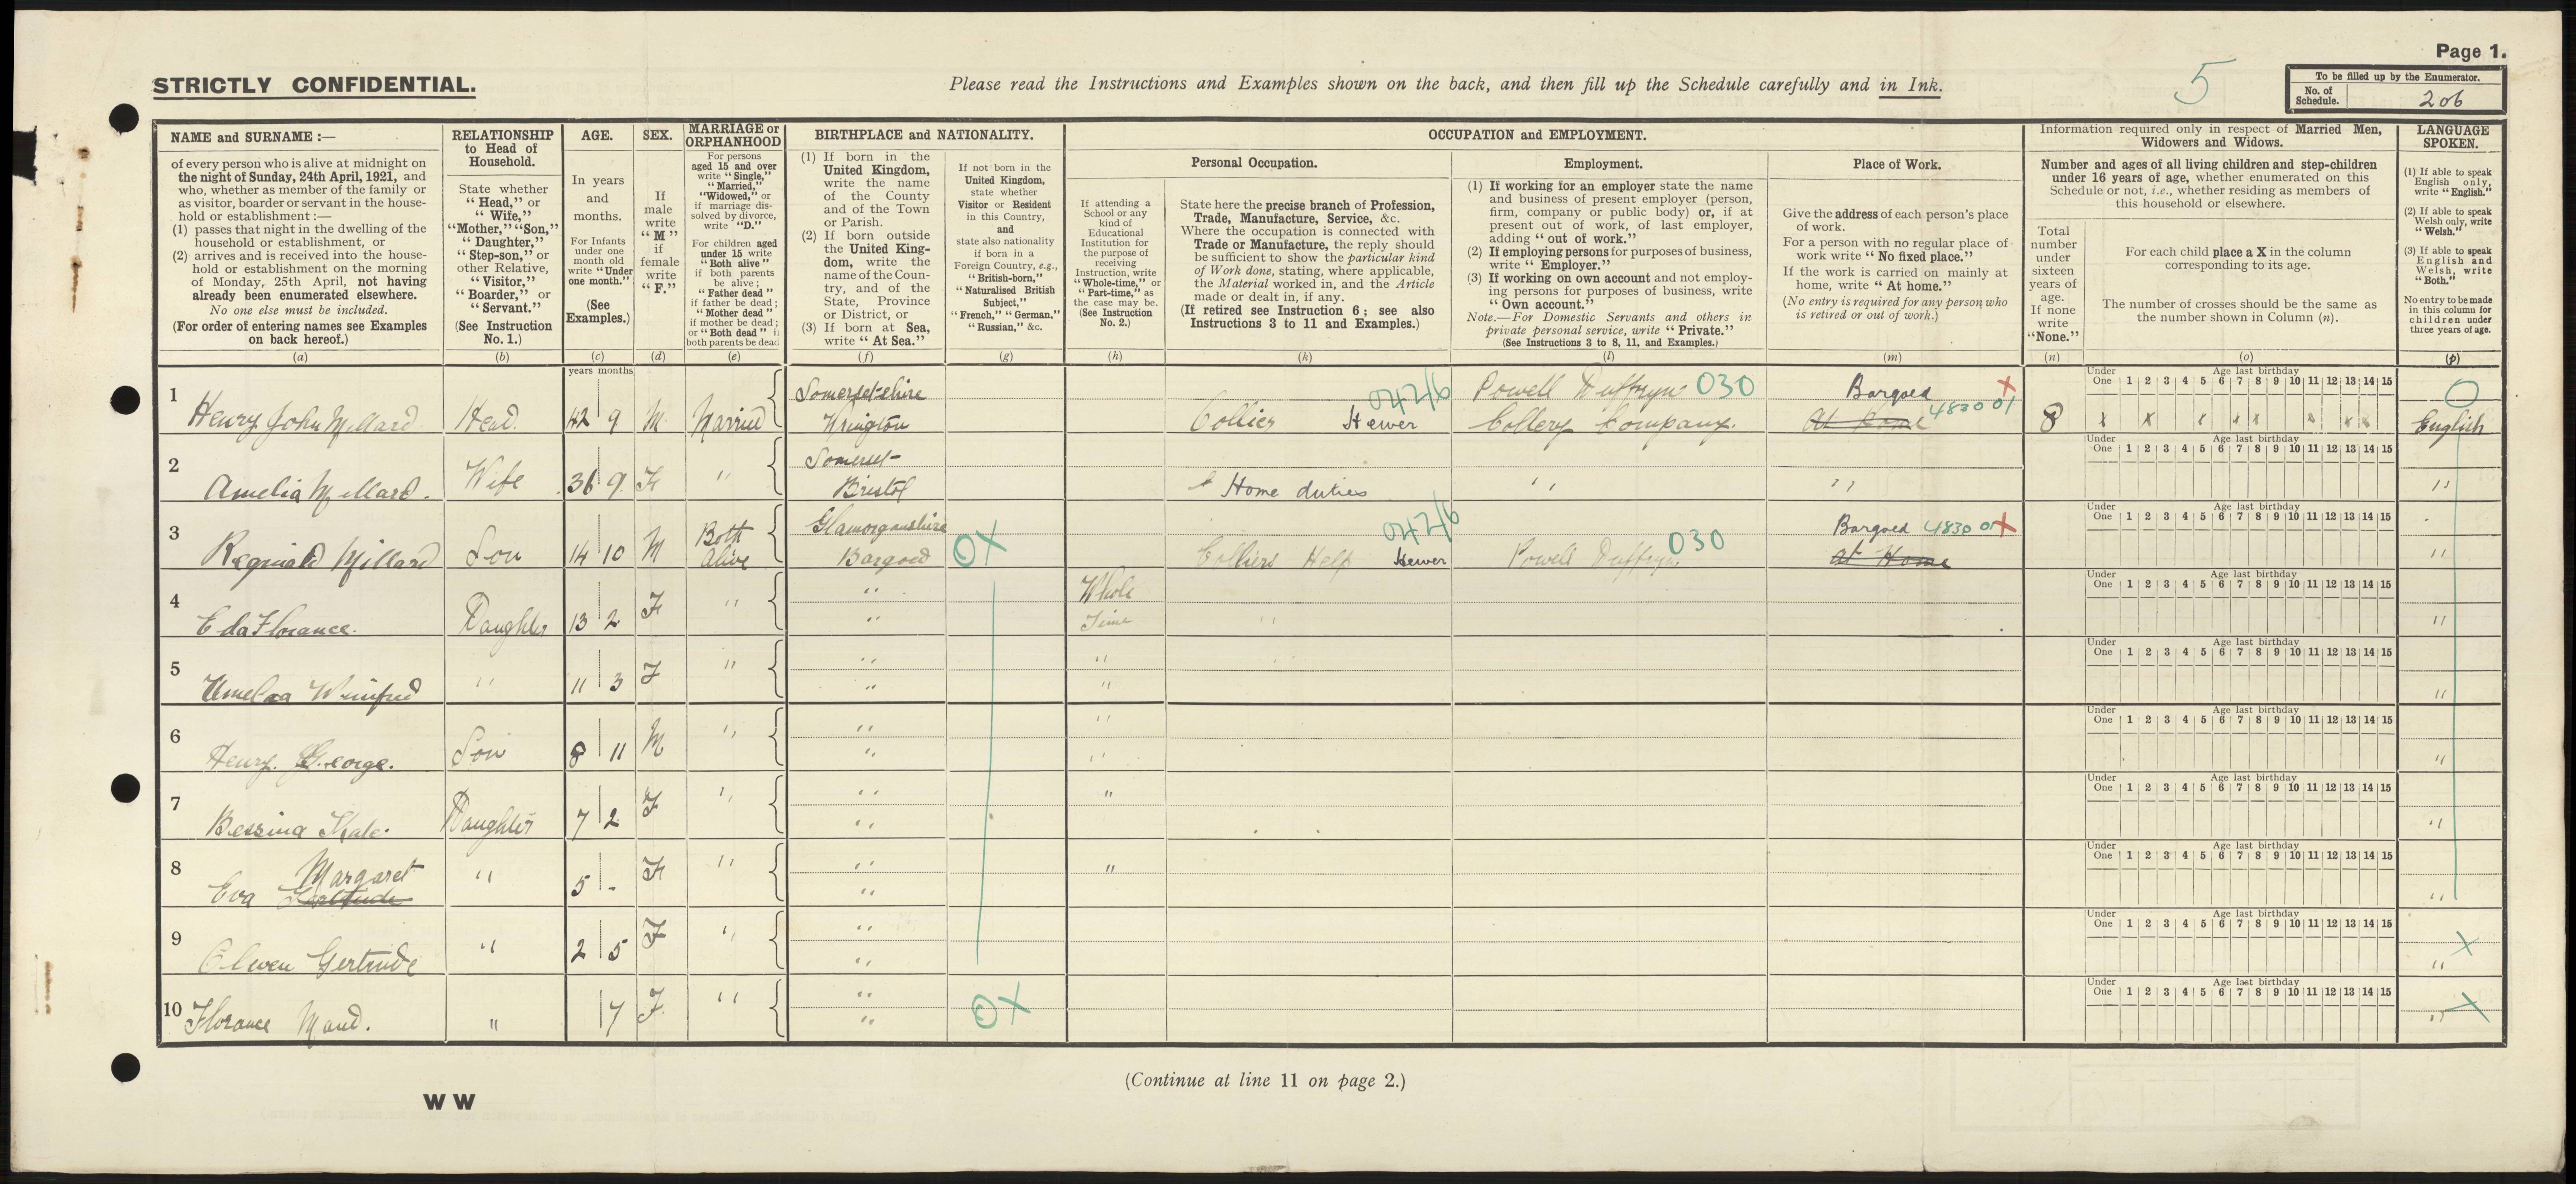 Page 1.
STRICTLY CONFIDENTIAL.
Please read the Instructions and Examples shown on the back, and then fill up the Schedule carefully and in Ink.
5
To be filled up by the Enumerator.
No. of Schedule. 206
NAME and SURNAME :—
of every person who is alive at midnight on
the night of Sunday, 24th April, 1921, and
who, whether as member of the family or
as visitor, boarder or servant in the house-
hold or establishment :—
(1) passes that night in the dwelling of the
household or establishment, or
(2) arrives and is received into the house-
hold or establishment on the morning
of Monday, 25th April, not having
already been enumerated elsewhere.
No one else must be included.
(For order of entering names see Examples
on back hereof.)
(a)
RELATIONSHIP
to Head of
Household.
State whether
"Head," or
"Wife,"
"Mother," "Son,"
"Daughter,"
"Step-son," or
other Relative,
"Visitor,"
"Boarder," or
"Servant."
(See Instruction
No. 1.)
(b)
AGE.
In years
and
months.
For Infants
under one
month old
write "Under
one month."
(See
Examples.)
(c)
SEX.
If
male
write
"M"
if
female
write
"F."
(d)
MARRIAGE or
ORPHANHOOD
For persons
aged 15 and over
write "Single,"
"Married,"
"Widowed," or
if marriage dis-
solved by divorce,
write "D."
For children aged
under 15 write
"Both alive"
if both parents
be alive;
"Father dead"
if father be dead;
"Mother dead"
if mother be dead;
or "Both dead" if
both parents be dead
(e)
BIRTHPLACE and NATIONALITY.
(1) If born in the
United Kingdom,
write the name
of the County
and of the Town
or Parish.
(2) If born outside
the United King-
dom, write the
name of the Coun-
try, and of the
State, Province
or District, or
(3) If born at Sea,
write "At Sea."
(f)
If not born in the
United Kingdom,
state whether
Visitor or Resident
in this Country,
and
state also nationality
if born in a
Foreign Country, e.g.,
"British-born,"
"Naturalised British
Subject,"
"French," "German,"
"Russian," &c.
(g)
OCCUPATION and EMPLOYMENT.
If attending a
School or any
kind of
Educational
Institution for
the purpose of
receiving
Instruction, write
"Whole-time," or
"Part-time," as
the case may be.
(See Instruction
No. 2.)
(h)
Personal Occupation.
State here the precise branch of Profession,
Trade, Manufacture, Service, &c.
Where the occupation is connected with
Trade or Manufacture, the reply should
be sufficient to show the particular kind
of Work done, stating, where applicable,
the Material worked in, and the Article
made or dealt in, if any.
(If retired see Instruction 6; see also
Instructions 3 to 11 and Examples.)
(k)
Employment.
(1) If working for an employer state the name
and business of present employer (person,
firm, company or public body) or, if at
present out of work, of last employer,
adding "out of work."
(2) If employing persons for purposes of business,
write "Employer."
(3) If working on own account and not employ-
ing persons for purposes of business, write
"Own account."
Note.—For Domestic Servants and others in
private personal service, write "Private."
(See Instructions 3 to 8, 11, and Examples.)
(l)
Place of Work.
Give the address of each person's place
of work.
For a person with no regular place of
work write "No fixed place."
If the work is carried on mainly at
home, write "At home."
(No entry is required for any person who
is retired or out of work.)
(m)
Information required only in respect of Married Men,
Widowers and Widows.
Number and ages of all living children and step-children
under 16 years of age, whether enumerated on this
Schedule or not, i.e., whether residing as members of
this household or elsewhere.
Total
number
under
sixteen
years of
age.
If none
write
"None."
(n)
For each child place a X in the column
corresponding to its age.
The number of crosses should be the same as
the number shown in Column (n).
(o)
LANGUAGE
SPOKEN.
(1) If able to speak
English only,
write "English."
(2) If able to speak
Welsh only, write
"Welsh."
(3) If able to speak
English and
Welsh, write
"Both."
No entry to be made
in this column for
children under
three years of age.
(p)
years months
Under One 1 2 3 4 5 6 7 8 9 10 11 12 13 14 15
Age last birthday
1 Henry John Millard Head. 42 9 M. Married Somersetshire Wrington Collier Hewer 042/6 Powell Duffryn 030 Collery Company. Bargoed X At Home 4830 01 8 x x x x x x x x English O
Under One 1 2 3 4 5 6 7 8 9 10 11 12 13 14 15
Age last birthday
2 Amelia Millard. Wife 36 9 F " Somerset Bristol Home duties " " "
Under One 1 2 3 4 5 6 7 8 9 10 11 12 13 14 15
Age last birthday
3 Reginald Millard Son 14 10 M Both Alive Glamorganshire Bargoed OX Colliers Help Hewer 042/6 Powell Duffryn 030 Bargoed 4830 01 X At Home "
Under One 1 2 3 4 5 6 7 8 9 10 11 12 13 14 15
Age last birthday
4 Eda Florance. Daughter 13 2 F " " " Whole Time " "
Under One 1 2 3 4 5 6 7 8 9 10 11 12 13 14 15
Age last birthday
5 Winifred " 11 3 F " " " " " "
Under One 1 2 3 4 5 6 7 8 9 10 11 12 13 14 15
Age last birthday
6 Henry. George. Son 8 11 M " " " " " "
Under One 1 2 3 4 5 6 7 8 9 10 11 12 13 14 15
Age last birthday
7 Kate. Daughter 7 2 F " " " " "
Under One 1 2 3 4 5 6 7 8 9 10 11 12 13 14 15
Age last birthday
8 Eva Margaret Gertrude " 5 - F " " " " "
Under One 1 2 3 4 5 6 7 8 9 10 11 12 13 14 15
Age last birthday
9 Olwen Gertrude " 2 5 F " " " " X
Under One 1 2 3 4 5 6 7 8 9 10 11 12 13 14 15
Age last birthday
10 Florance Maud. " 7 F " " " OX " X
(Continue at line 11 on page 2.)
W W